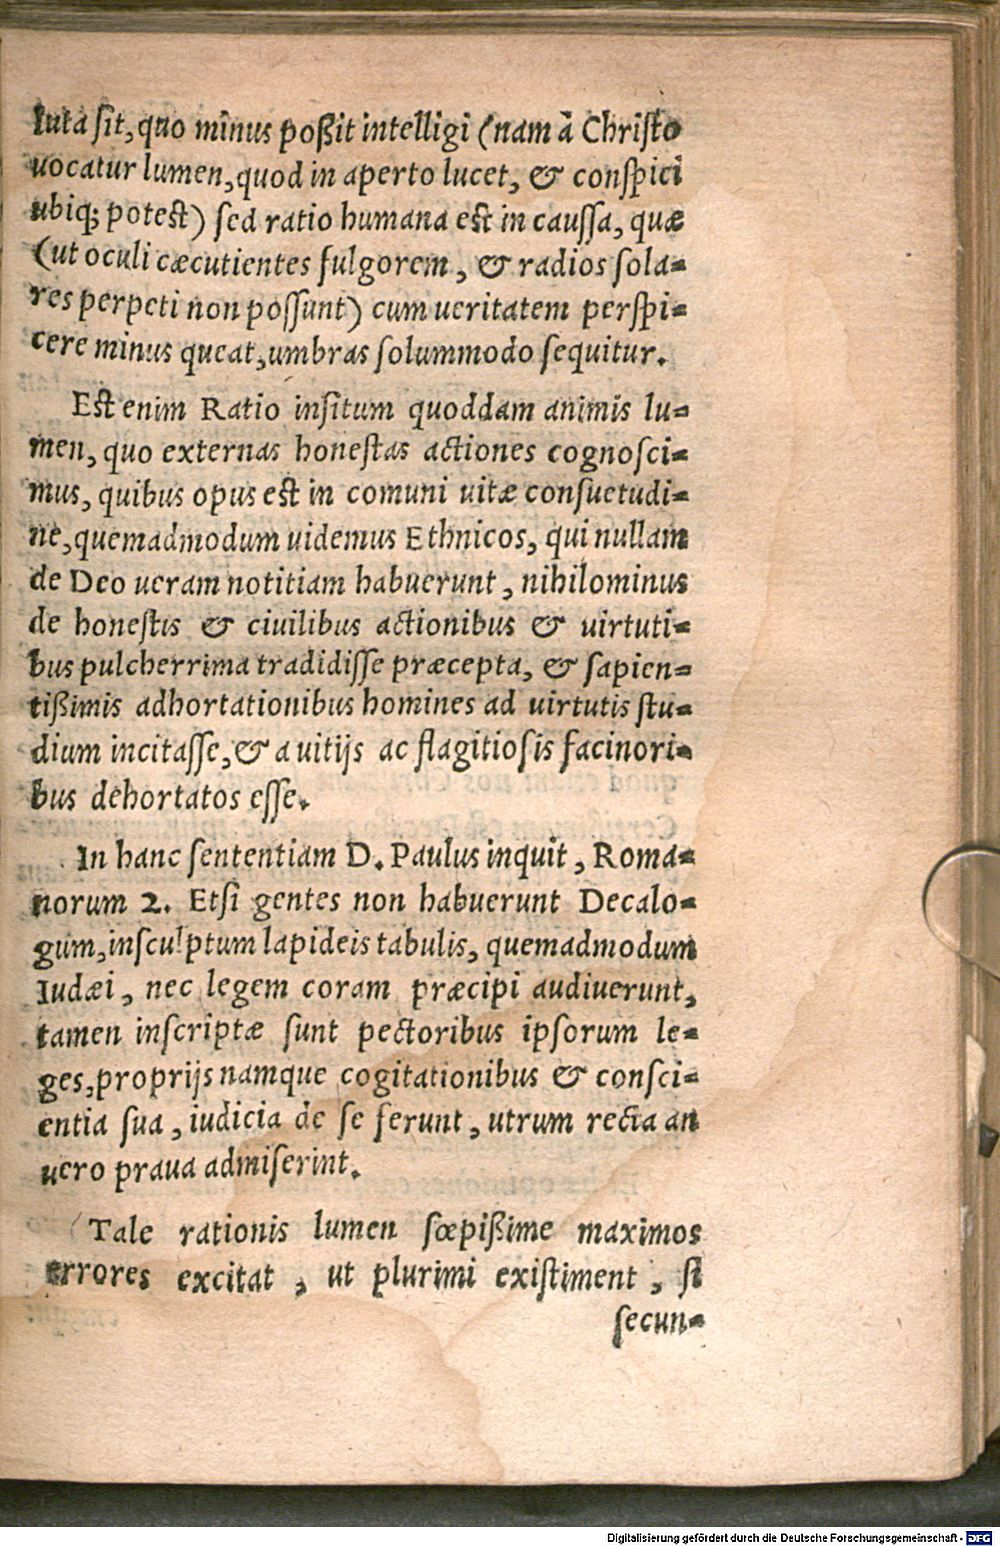 luta sit, quo minus poßit intelligi (nam à Christo
uocatur lumen, quod in aperto lucet, & conspici
ubiq; potest) sed ratio humana est in caussa, quæ
(ut oculi cæcutientes fulgorem, & radios sola-
res perpeti non possunt) cum ueritatem perspi-
cere minus queat, umbras solummodo sequitur.
Est enim Ratio insitum quoddam animis lu-
men, quo externas honestas actiones cognosci-
mus, quibus opus est in comuni uitæ consuetudi-
ne, quemadmodum uidemus Ethnicos, qui nullam
de Deo ueram notitiam habuerunt, nihilominus
de honestis & ciuilibus actionibus & uirtuti-
bus pulcherrima tradidisse præcepta, & sapien-
tißimis adhortationibus homines ad uirtutis stu-
dium incitasse, & a uitijs ac flagitiosis facinori-
bus dehortatos esse.
In hanc sententiam D. Paulus inquit, Roma-
norum 2. Etsi gentes non habuerunt Decalo-
gum, insculptum lapideis tabulis, quemadmodum
Iudæi, nec legem coram præcipi audiuerunt,
tamen inscriptæ sunt pectoribus ipsorum le-
ges, proprijs namque cogitationibus & consci-
entia sua, iudicia de se ferunt, utrum recta an
uero praua admiserint.
Tale rationis lumen sœpißime maximos
errores excitat, ut plurimi existiment, si
secun-
Digitalisierung gefördert durch die Deutsche Forschungsgemeinschaft - DFG